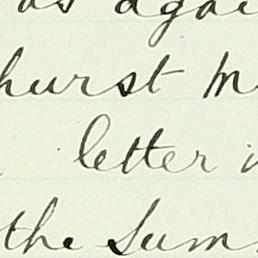 as agai
hurst M
letter i
the Sum